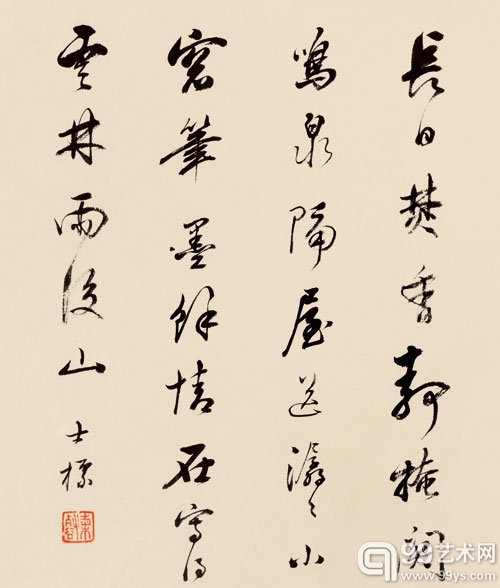 長日焚香靜掩關
鳴泉隔屋送潺々小
窓筆墨餘情在寫得
雲林雨後山 士標
99艺术网
www.99ys.com